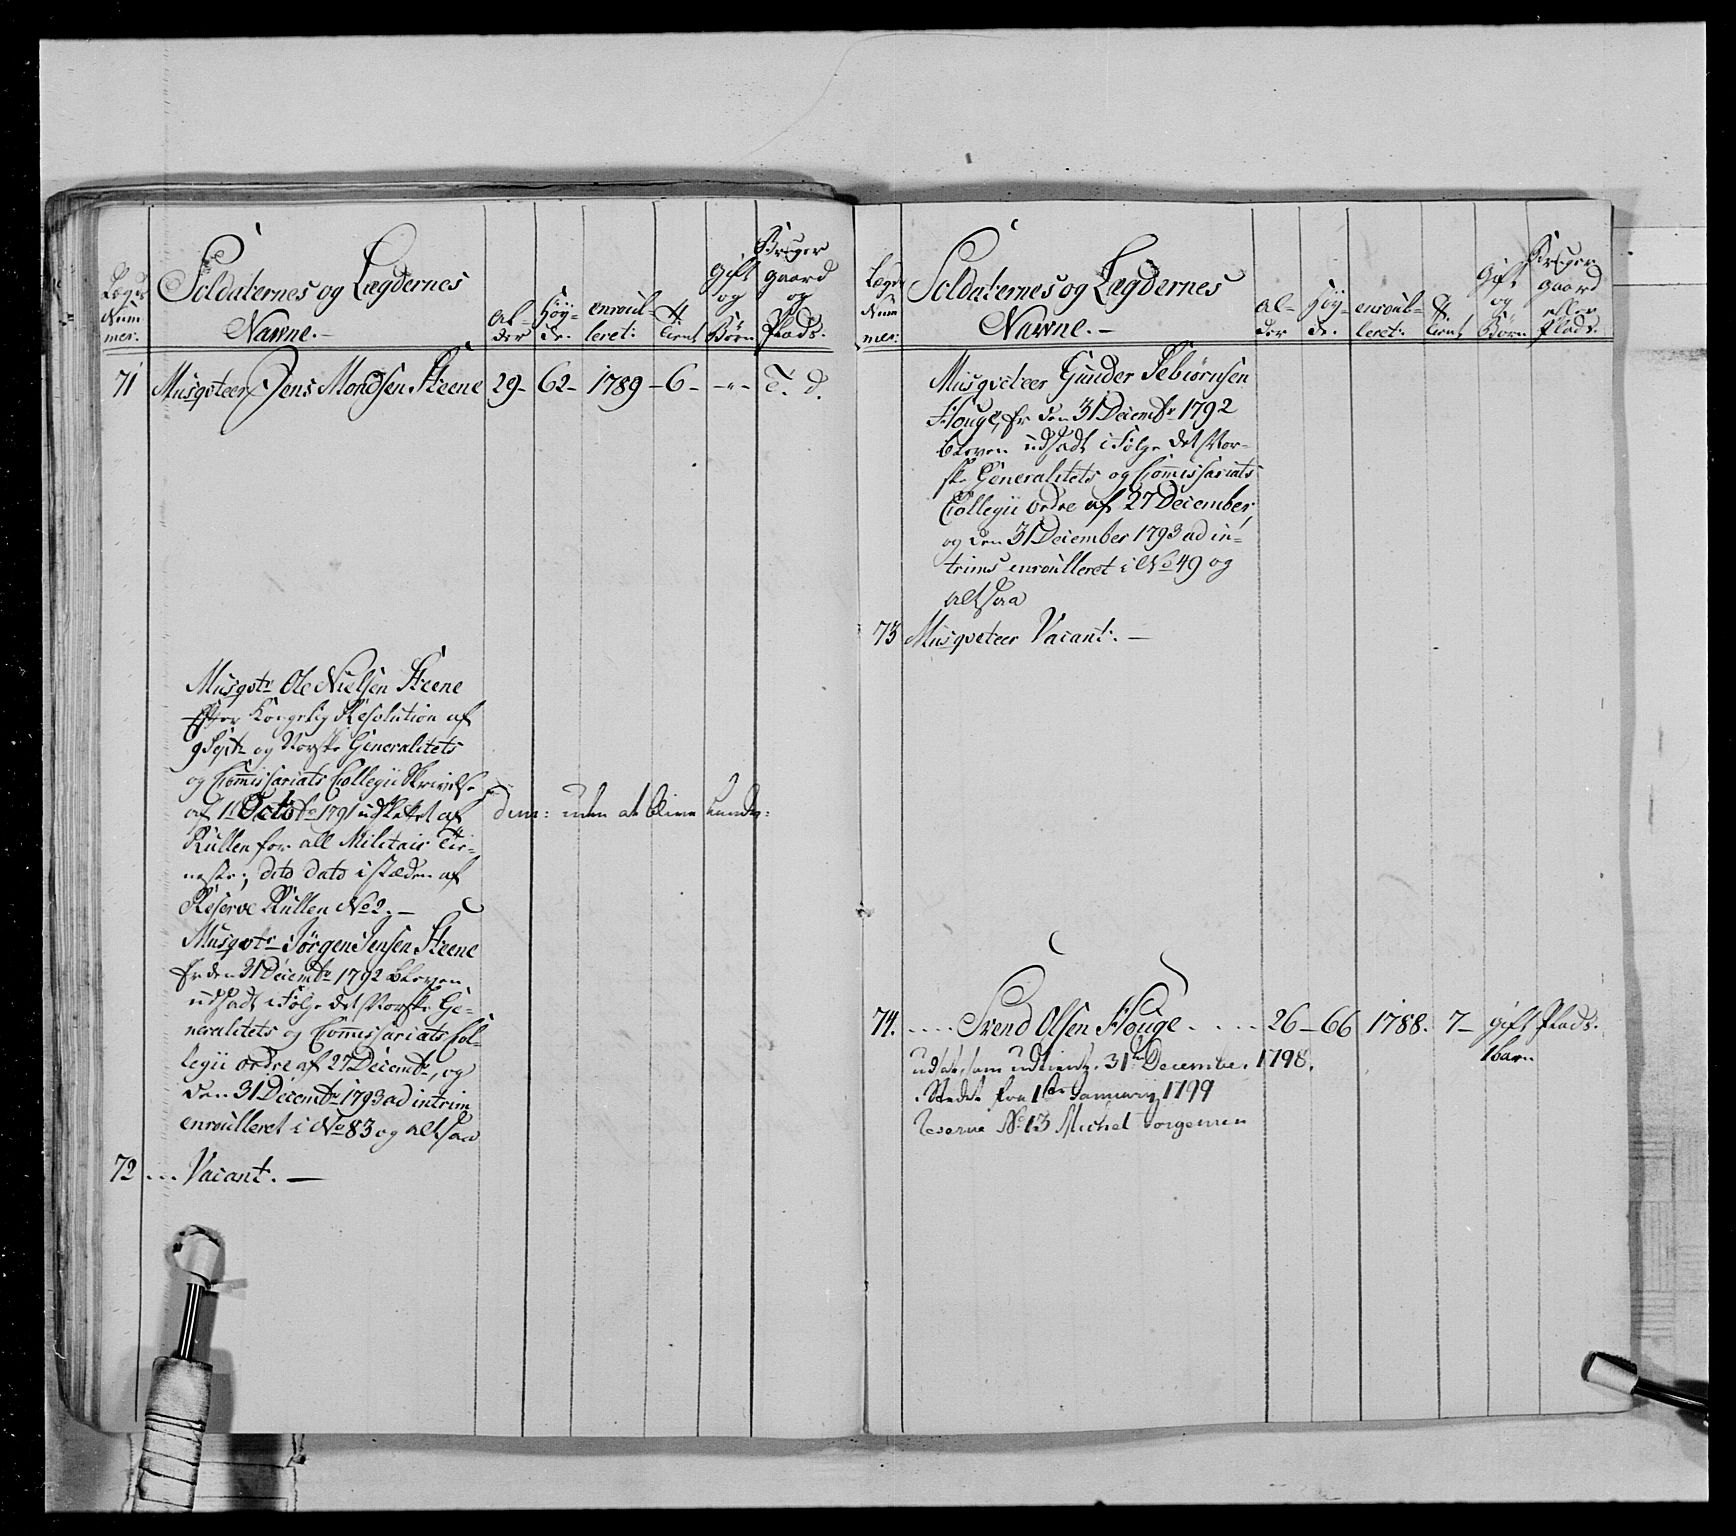 Lægds Num mer:
Soldaternes og Lægdernes
Navne. –
al- der
Høy- de.
enroul- leret:
Tient
Gift og Börn
Bruger gaard og Plads.
71 Musqvteer Jens Mondsen Steene 29 – 62 – 1789 – 6 – – „ – T. d.
Musqvtr Ole Nielsen Steene
efter Kongelig Resolution af
9 Septr og Norske Generalitets
og Com̄issariats Collegii Skrivelse
af 11 Octobr 1791 udslettet af
Rullen for all Militair Tie-
neste; dito dato i stæden af
Reserve Rullen No 2. –
Musqvtr Jörgen Jensen Steene
er den 31 Decembr 1792 bleven
udsadt i Følge det Norske Ge-
neralitets og Com̄issariats Col-
legii ordre af 27 Decembr, og
den 31 Decembr 1793 ad intrim
enroulleret i No 83 og altsaa
72 ... Vacant. –
Lægds Num mer:
Soldaternes og Lægdernes
Navne. –
al- der
Høy- de.
enroul- leret:
Tient
Gift og Börn
Bruger gaard eller Plads.
Musqveteer Gunder Sebiørnsen
Houge, er den 31 Decembr 1792
bleven udsadt i Følge det Nor-
ske Generalitets og Com̄issariats
Collegii ordre af 27 December,
og den 31 December 1793 ad in-
trims enroulleret i No 49 og
altsaa
73 Musqveteer Vacant. –
74. .... Svend Olsen Houge .... 26 – 66 1788. 7 – gift Plads.
1 barn
udsat som udtient 31te December 1798.
i Stedet fra 1ste January 1799
Reserve No 13 Michel Jörgensen